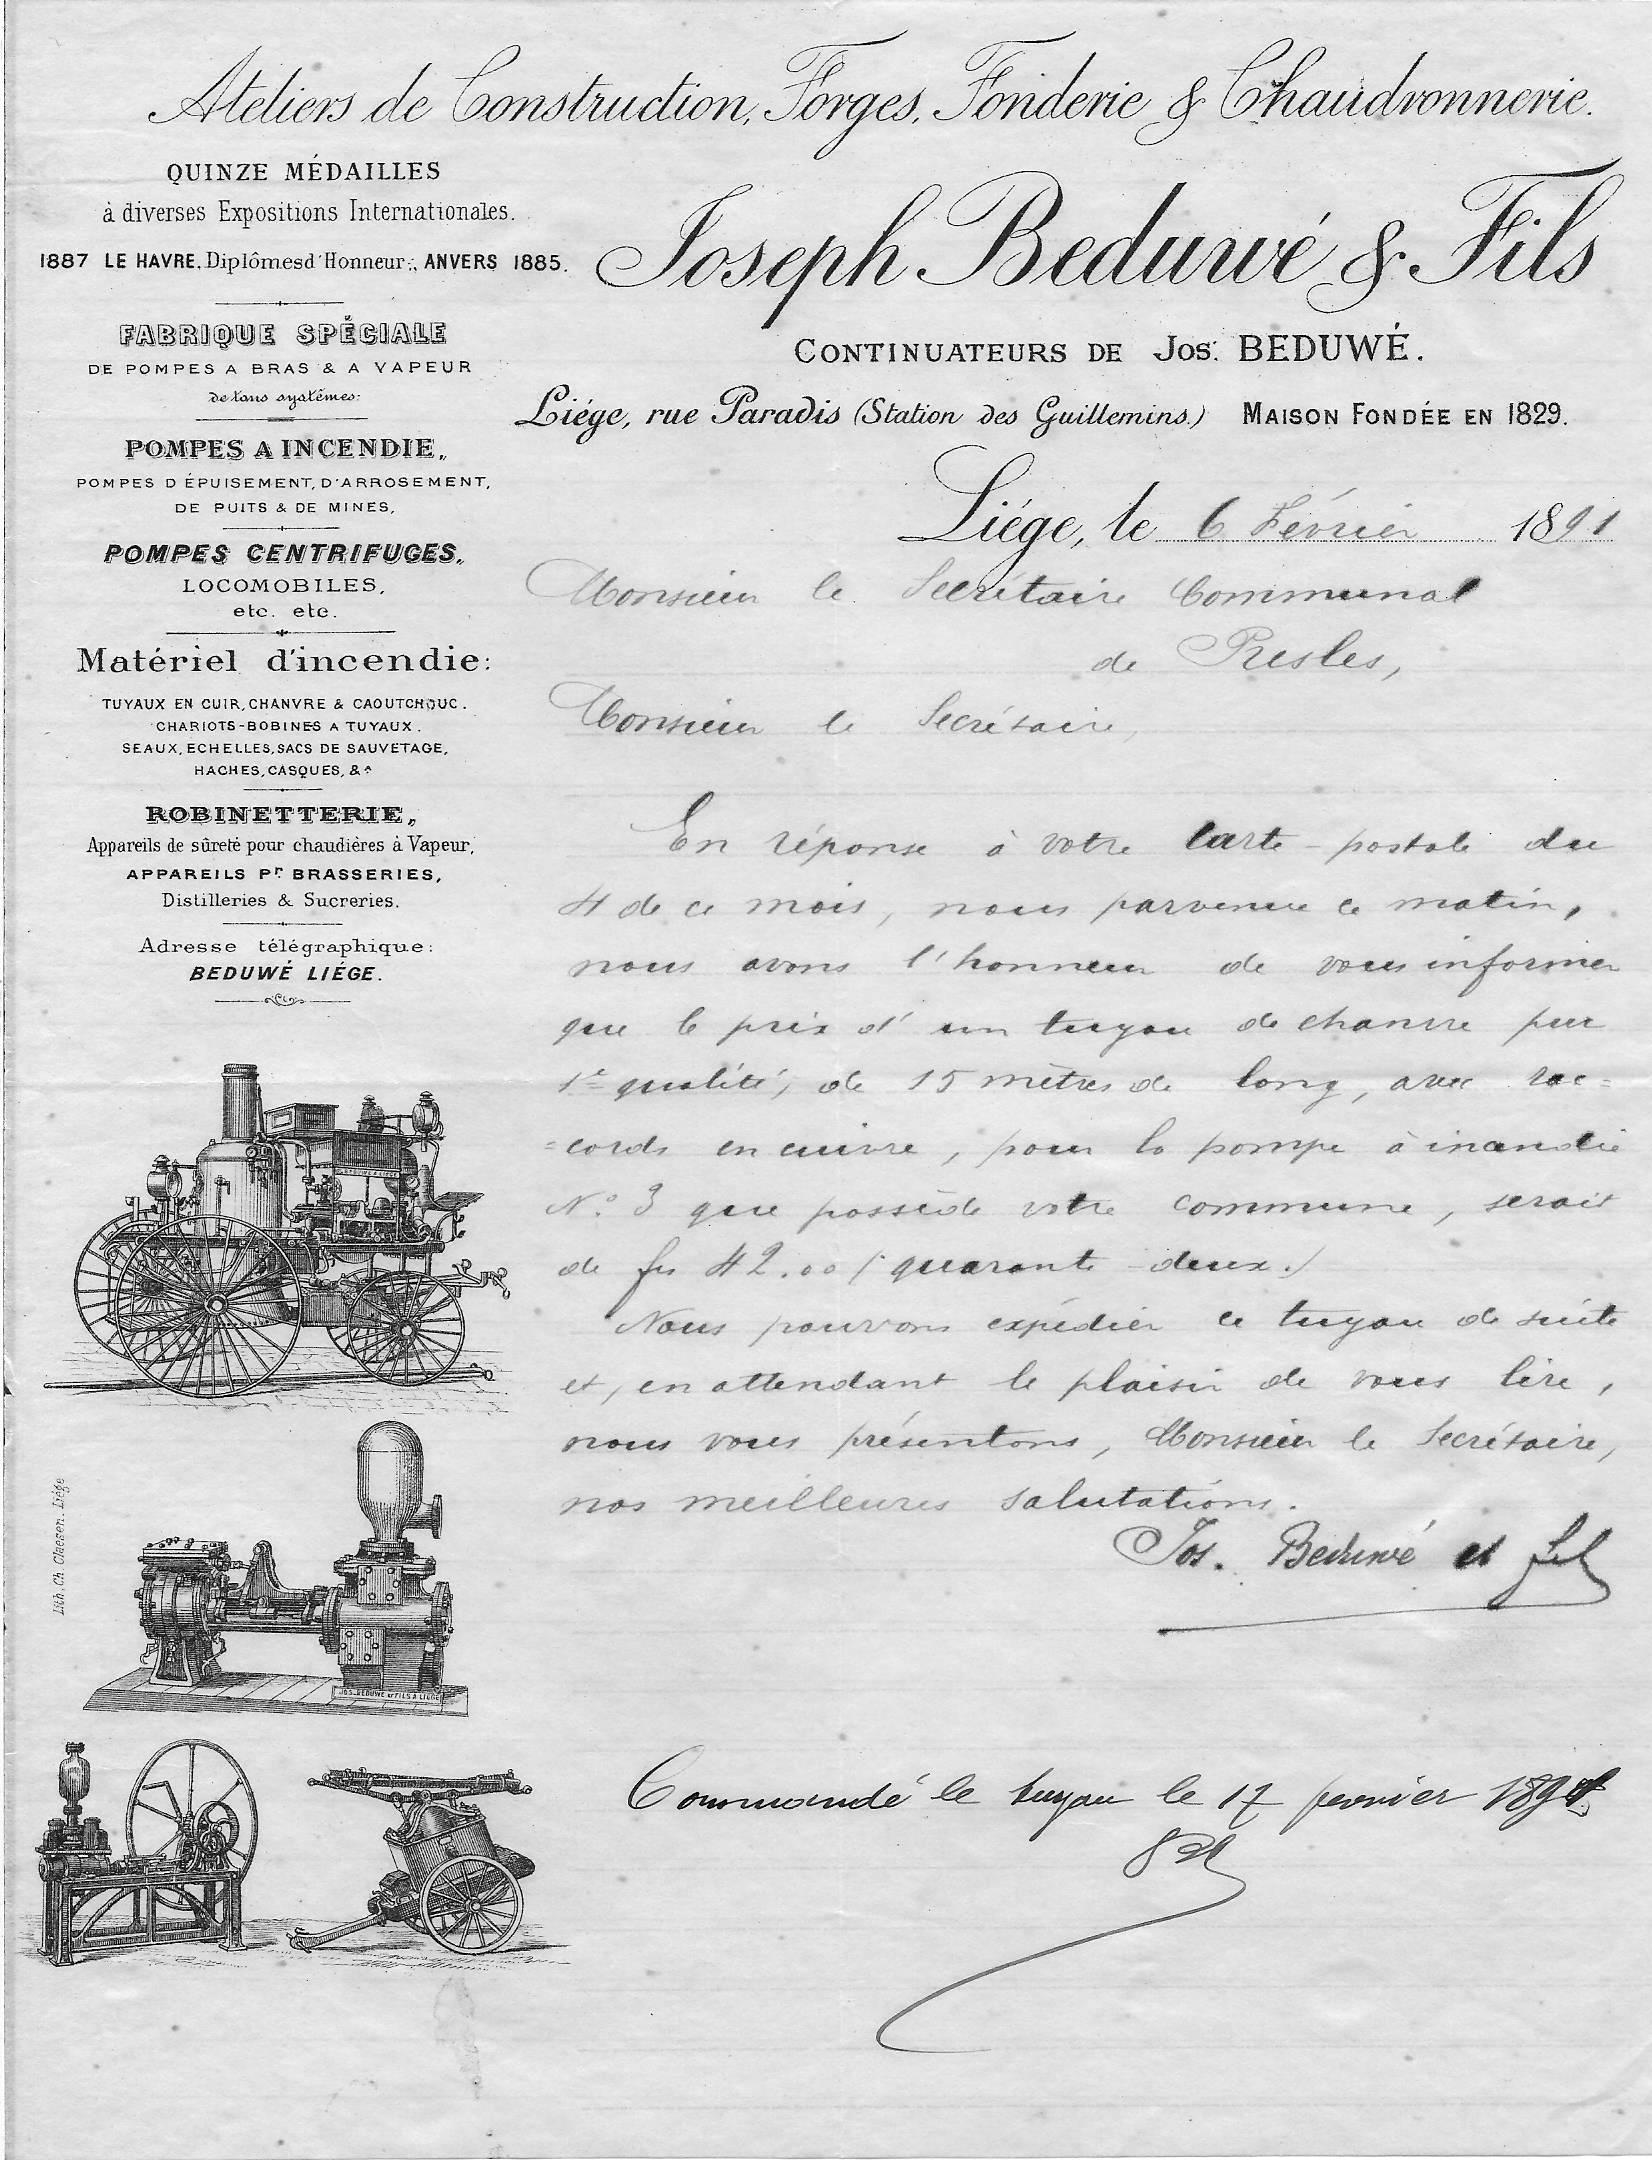 Ateliers de Construction, Forges, Fonderie & Chaudronnerie.
QUINZE MÉDAILLES
à diverses Expositions Internationales.
1887 LE HAVRE. Diplômes d'Honneur. ANVERS 1885.
Joseph Beduwé & Fils
CONTINUATEURS DE Jos. BEDUWÉ.
Liége, rue Paradis (Station des Guillemins.) MAISON FONDÉE EN 1829.
FABRIQUE SPÉCIALE
DE POMPES A BRAS & A VAPEUR
de tous systèmes:
POMPES A INCENDIE,
POMPES D'ÉPUISEMENT, D'ARROSEMENT,
DE PUITS & DE MINES,
POMPES CENTRIFUGES,
LOCOMOBILES,
etc. etc.
Matériel d'incendie:
TUYAUX EN CUIR, CHANVRE & CAOUTCHOUC.
CHARIOTS-BOBINES A TUYAUX.
SEAUX, ECHELLES, SACS DE SAUVETAGE,
HACHES, CASQUES, &ᵃ
ROBINETTERIE,
Appareils de sûreté pour chaudières à Vapeur,
APPAREILS Pr BRASSERIES,
Distilleries & Sucreries.
Adresse télégraphique:
BEDUWÉ LIÉGE.
Lith. Ch. Claesen. Liége
JOS. BEDUWÉ ET FILS A LIÉGE
Liége, le 6 Février 1891
Monsieur le Secrétaire Communal
de Presles,
Monsieur le Secrétaire,
En réponse à votre carte-postale du
4 de ce mois, nous parvenue ce matin,
nous avons l'honneur de vous informer
que le prix d'un tuyau de chanvre pur
1e qualité, de 15 mètres de long, avec rac=
=cords en cuivre, pour la pompe à incendie
N° 3 que possède votre commune, serait
de frs 42.00 (quarante-deux.)
Nous pouvons expédier ce tuyau de suite
et, en attendant le plaisir de vous lire,
nous vous présentons, Monsieur le Secrétaire,
nos meilleures salutations.
Jos. Beduwé et fils
Commandé le tuyau le 17 fevrier 1891